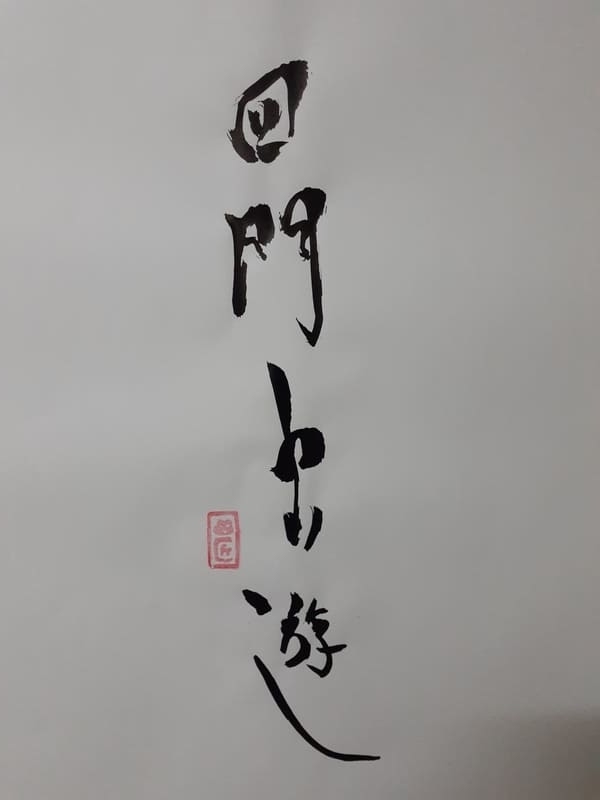 四門出遊